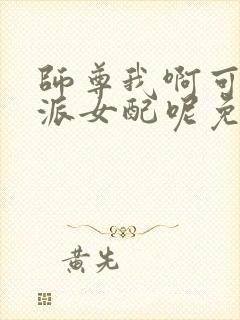 師尊我啊可
派女配呢免
黄先